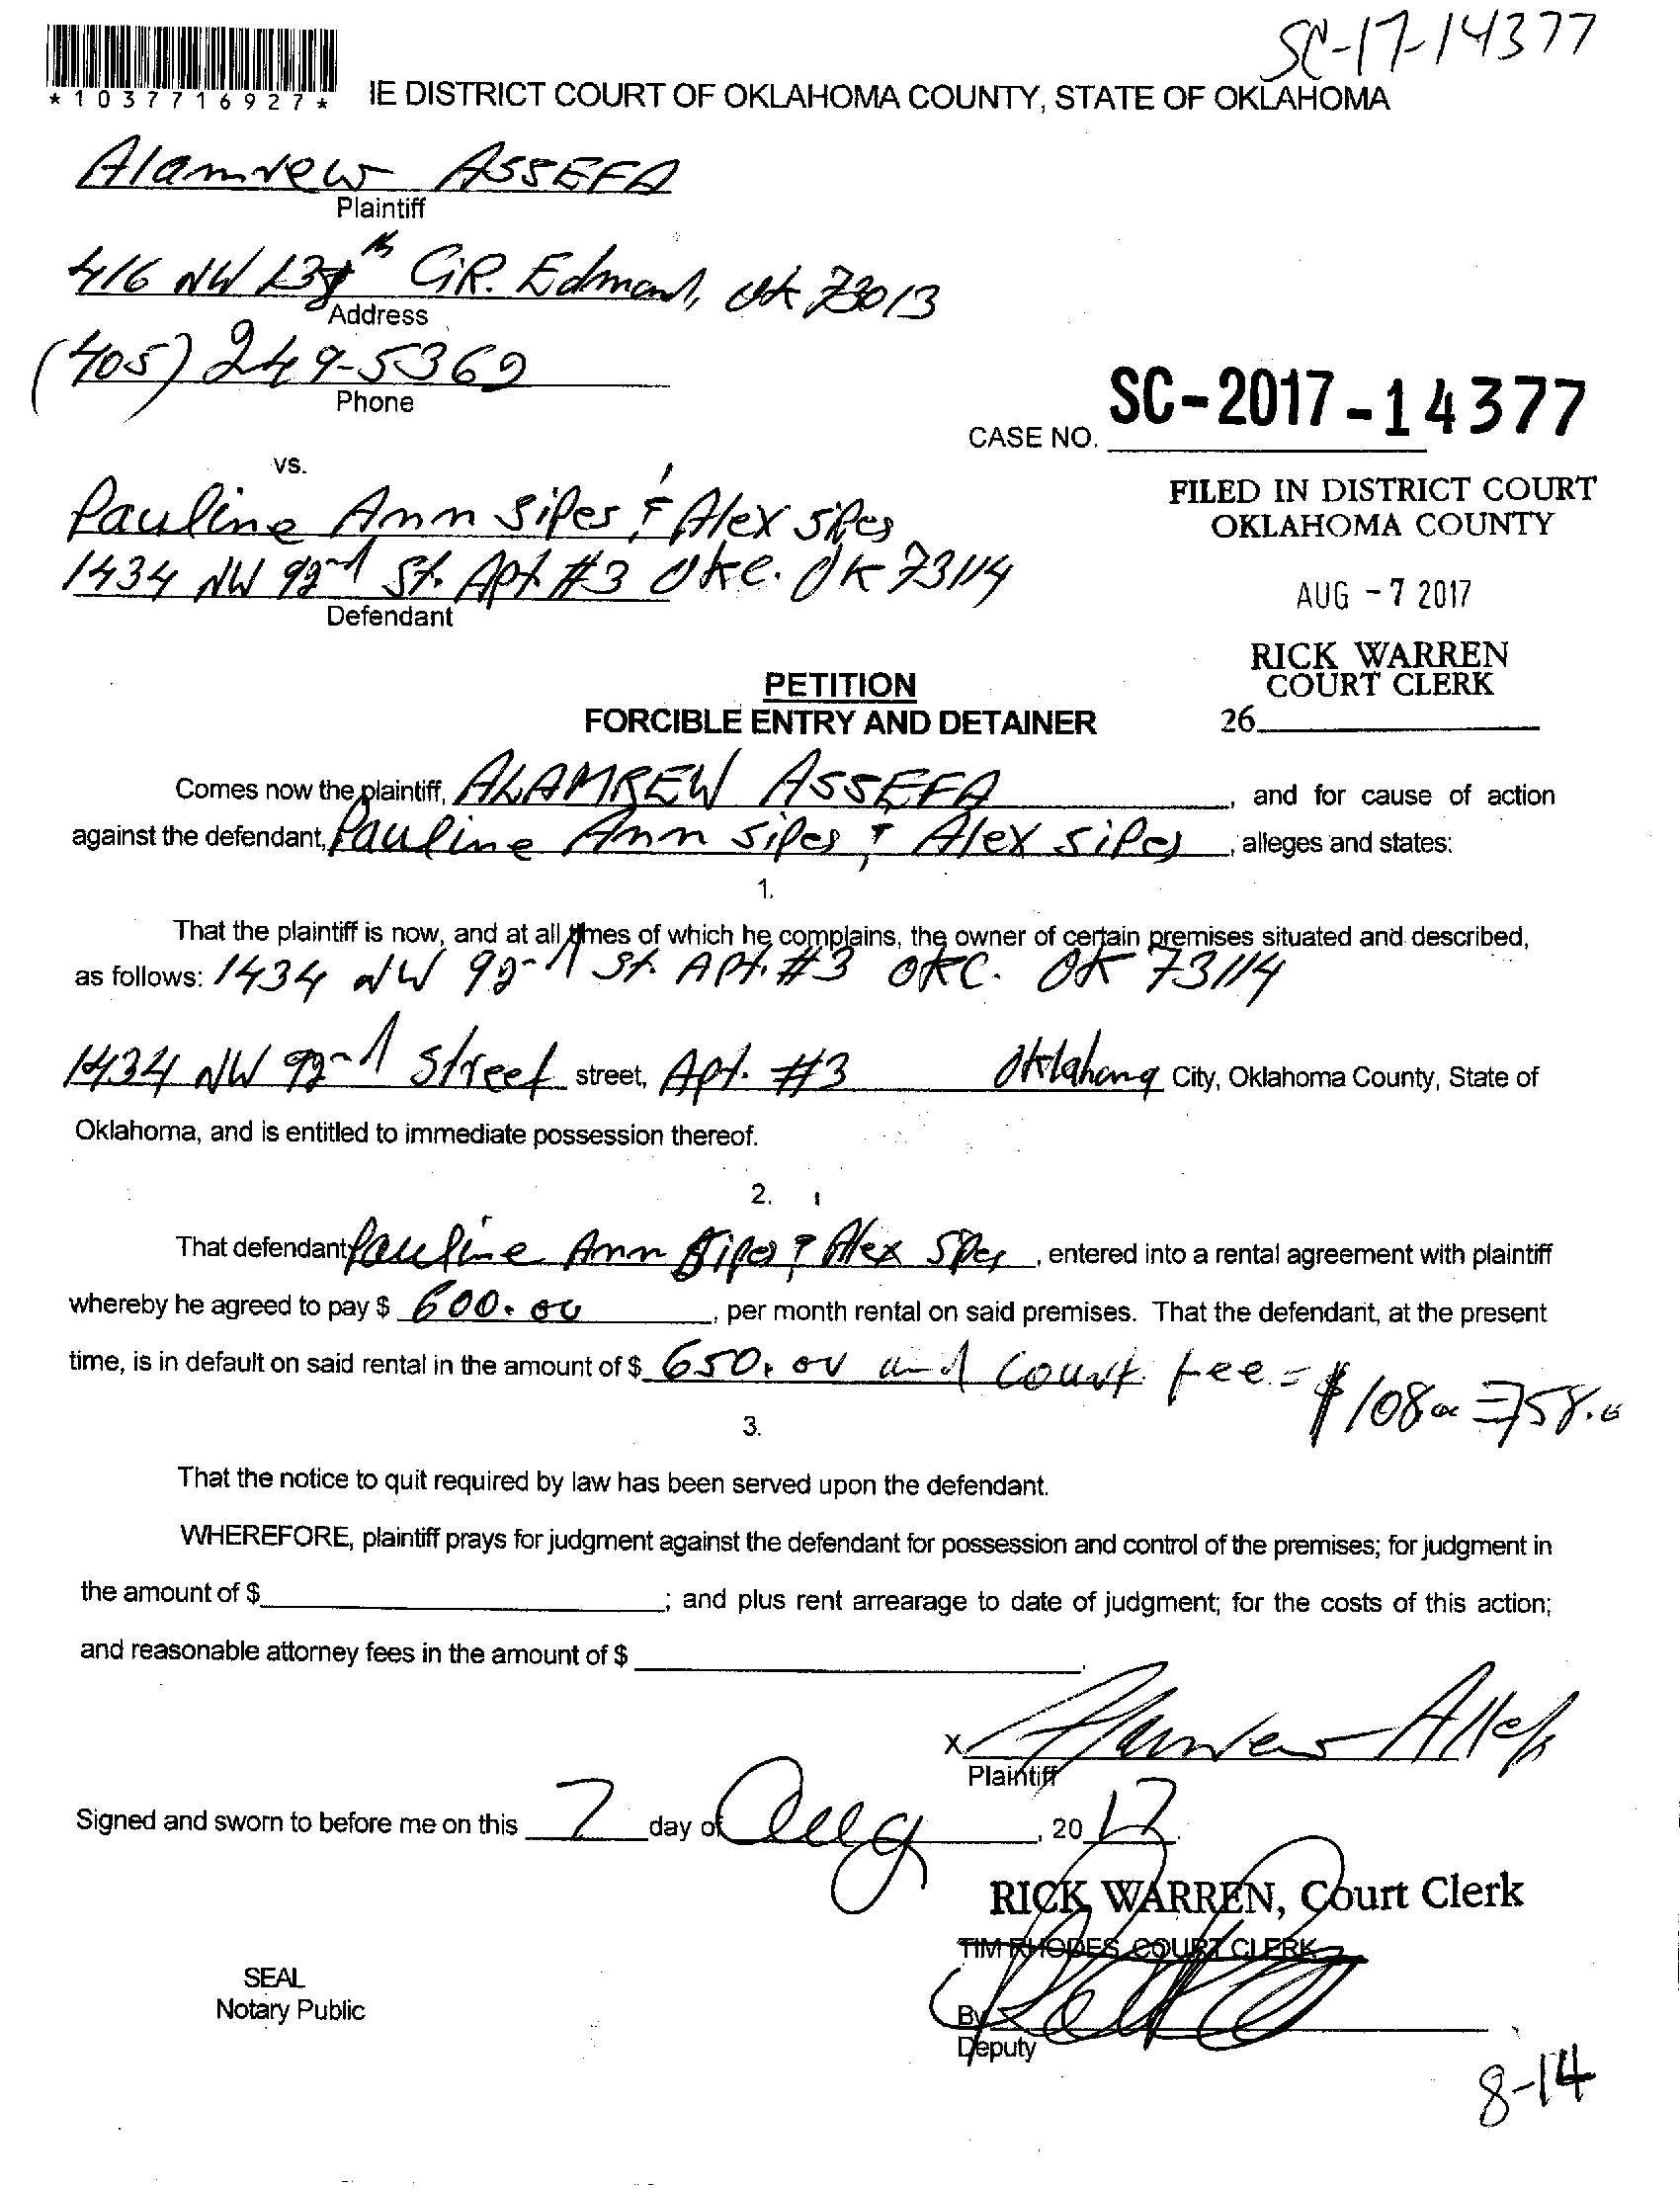 SC-17-14377
*1037716927*
IE DISTRICT COURT OF OKLAHOMA COUNTY, STATE OF OKLAHOMA
Alamrew ASSEFA
Plaintiff
416 NW 138th CiR. Edmond, OK 73013
Address
(405) 249-5369
Phone
CASE NO. SC-2017-14377
vs.
FILED IN DISTRICT COURT
OKLAHOMA COUNTY
Pauline Ann Sipes & Alex Sipes
1434 NW 92nd St. Apt #3 OKC. OK 73114
Defendant
AUG -7 2017
RICK WARREN
COURT CLERK
26
PETITION
FORCIBLE ENTRY AND DETAINER
Comes now the plaintiff, ALAMREW ASSEFA, and for cause of action
against the defendant, Pauline Ann Sipes & Alex Sipes, alleges and states:
1.
That the plaintiff is now, and at all times of which he complains, the owner of certain premises situated and described,
as follows: 1434 NW 92nd St. Apt. #3 OKC. OK 73114
1434 NW 92nd Street street, Apt. #3 Oklahoma City, Oklahoma County, State of
Oklahoma, and is entitled to immediate possession thereof.
2.
That defendant Pauline Ann Sipes & Alex Sipes, entered into a rental agreement with plaintiff
whereby he agreed to pay $ 600.00, per month rental on said premises. That the defendant, at the present
time, is in default on said rental in the amount of $ 650.00 and Court fee = $108.00 = 758.00
3.
That the notice to quit required by law has been served upon the defendant.
WHEREFORE, plaintiff prays for judgment against the defendant for possession and control of the premises; for judgment in
the amount of $ ; and plus rent arrearage to date of judgment; for the costs of this action;
and reasonable attorney fees in the amount of $ .
X
Plaintiff
Signed and sworn to before me on this 7 day of Aug, 2017
RICK WARREN, Court Clerk
TIM RHODES, COURT CLERK
SEAL
Notary Public
By
Deputy
8-14